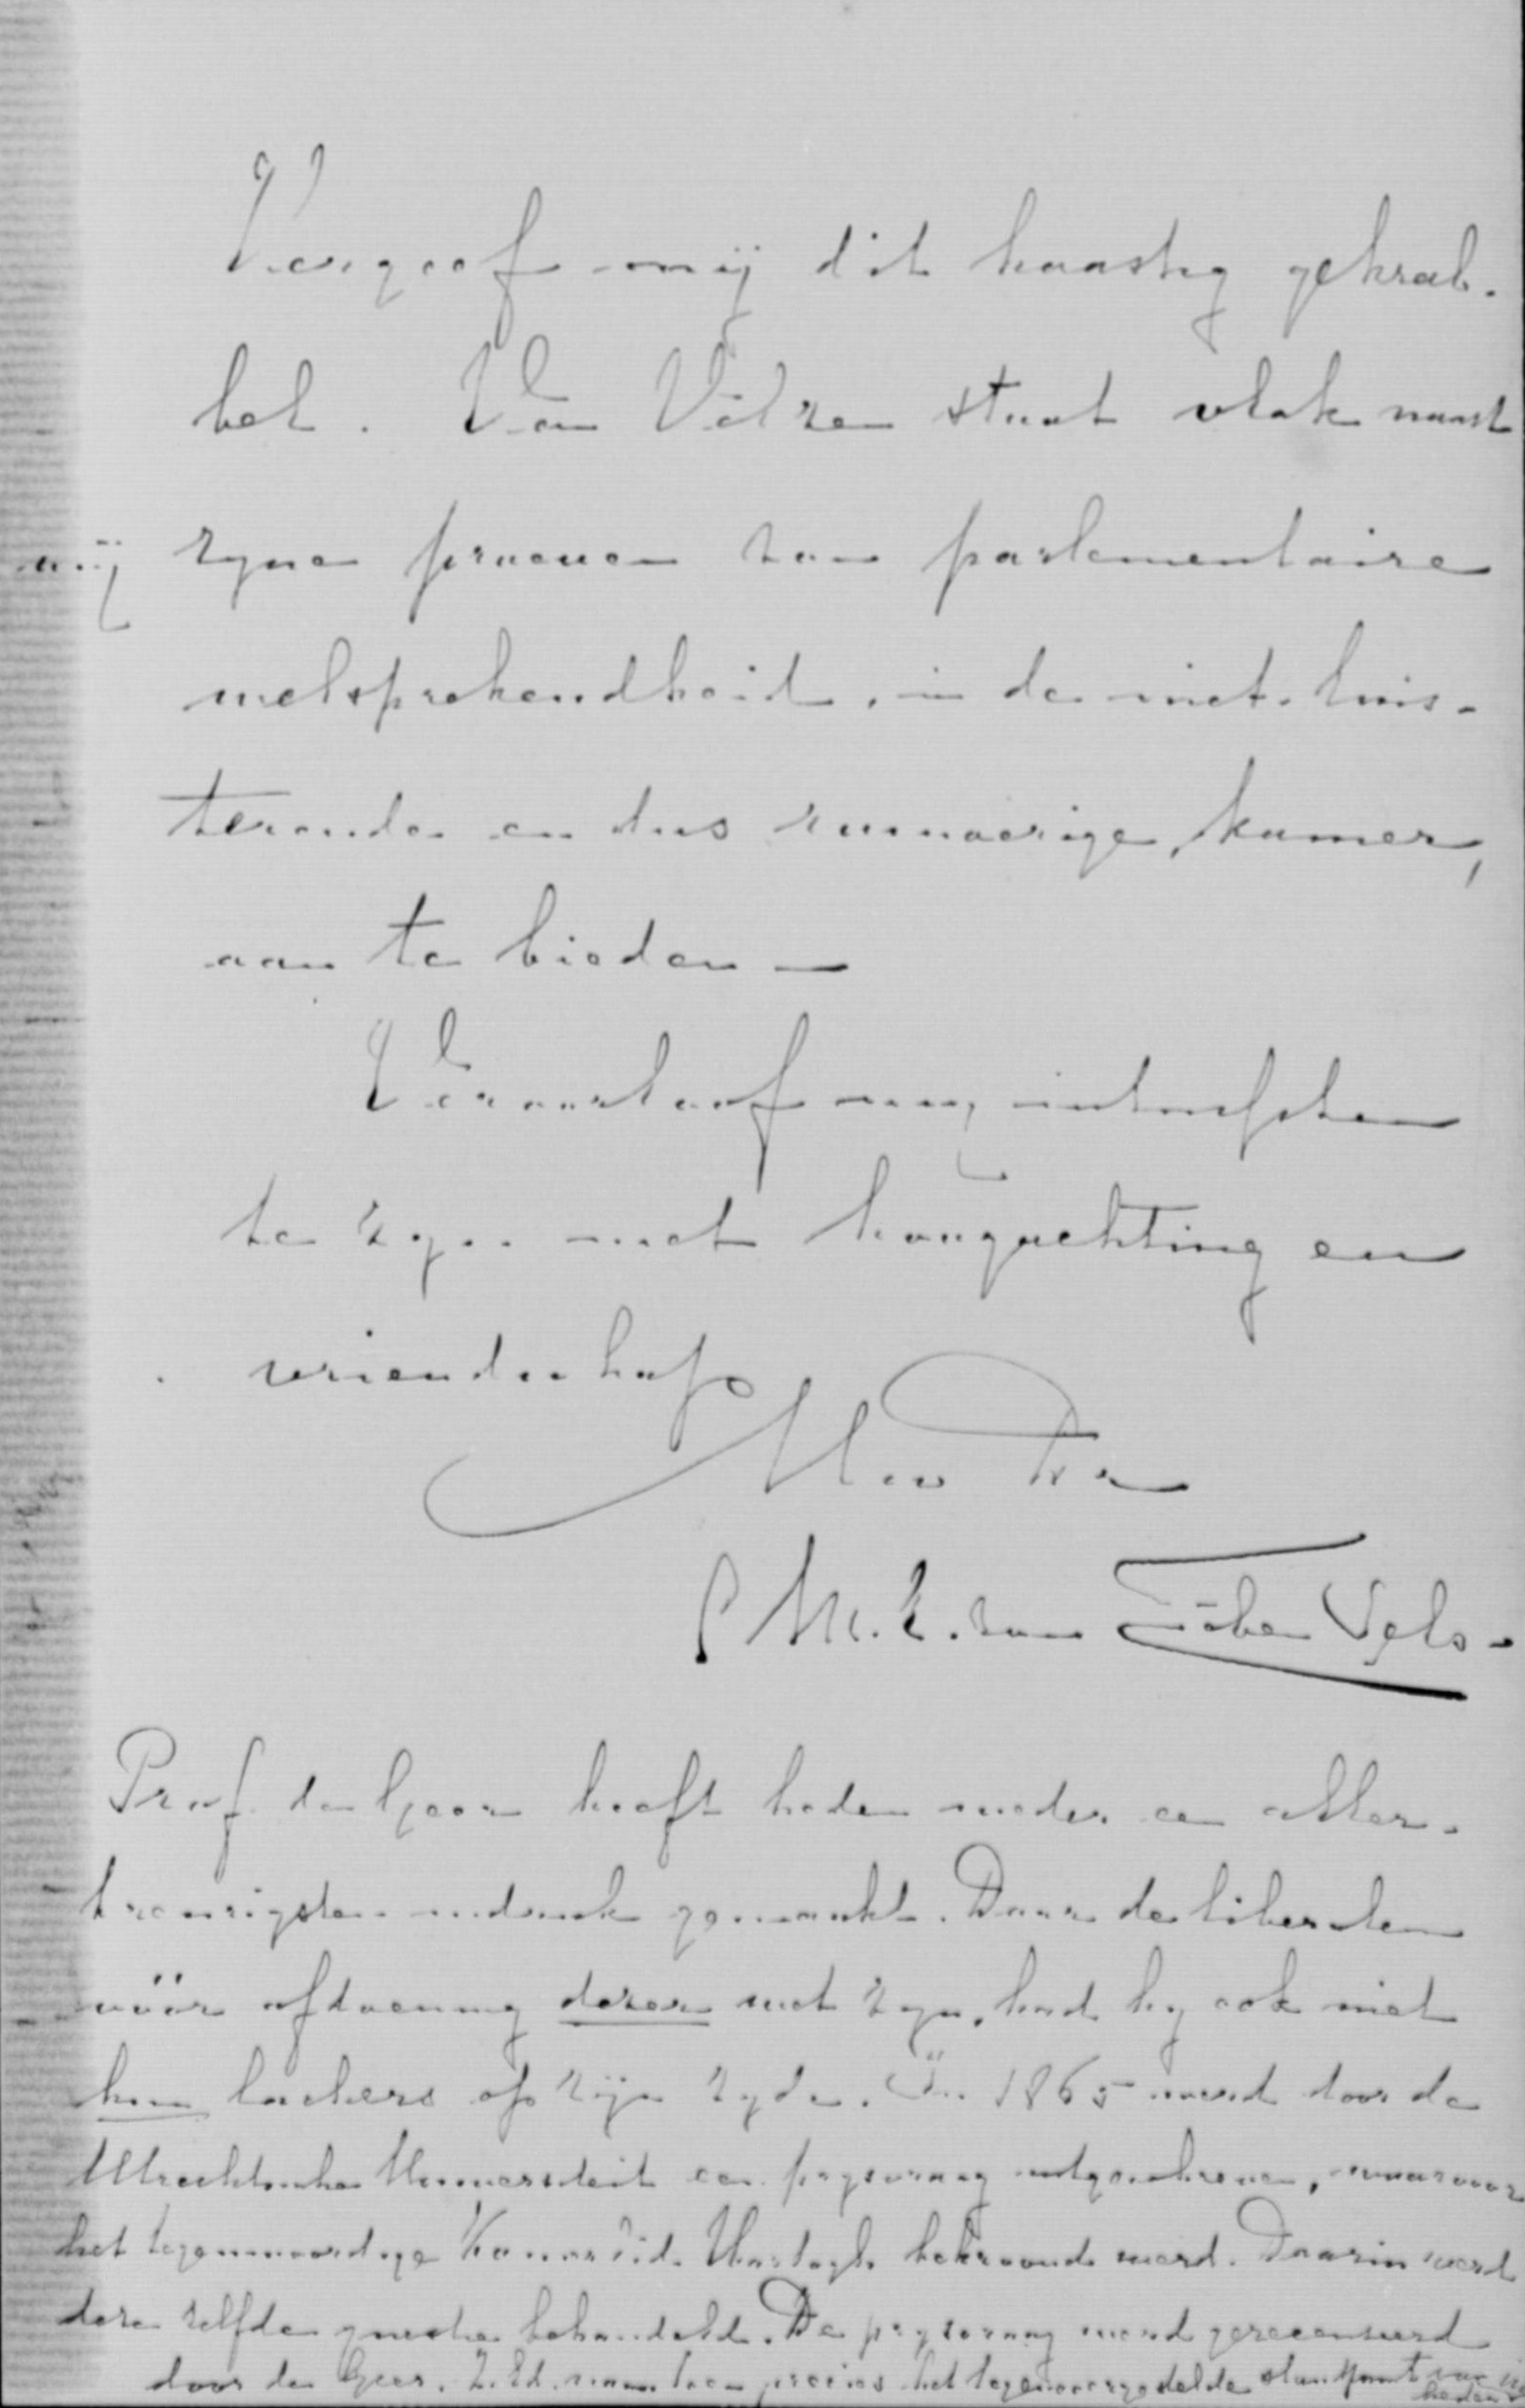 Vergeef mij dit haastig gekrab-
bel. Van Velzen staat vlak naast
mij zyne proeven van parlementaire
welsprekendheid, in de niet-luis-
terende en dus rumoerige, kamer,
aan te bieden —
Veroorloof my intusschen
te zyn met hoogachting en
vriendschap
Uw Dr
v Löben Sels -
Prof. de Geer heeft heden weder een aller-
treurigsten indruk gemaakt. Daar de liberalen
vóór afdoening dezer niet zyn, had hy ook niet
hun lachers op zijn zyde. In 1865 werd door de
Utrechtsche Universiteit een prysvraag uitgeschreven, waarvoor
het tegenwoordige Kamerlid Hartogh bekroond werd. Daarin werd
deze zelfde quaestie behandeld. De prysvraag werd gerecenseerd
door de Geer. Z.Ed. nam toen precies het tegenovergestelde standpunt van
heden